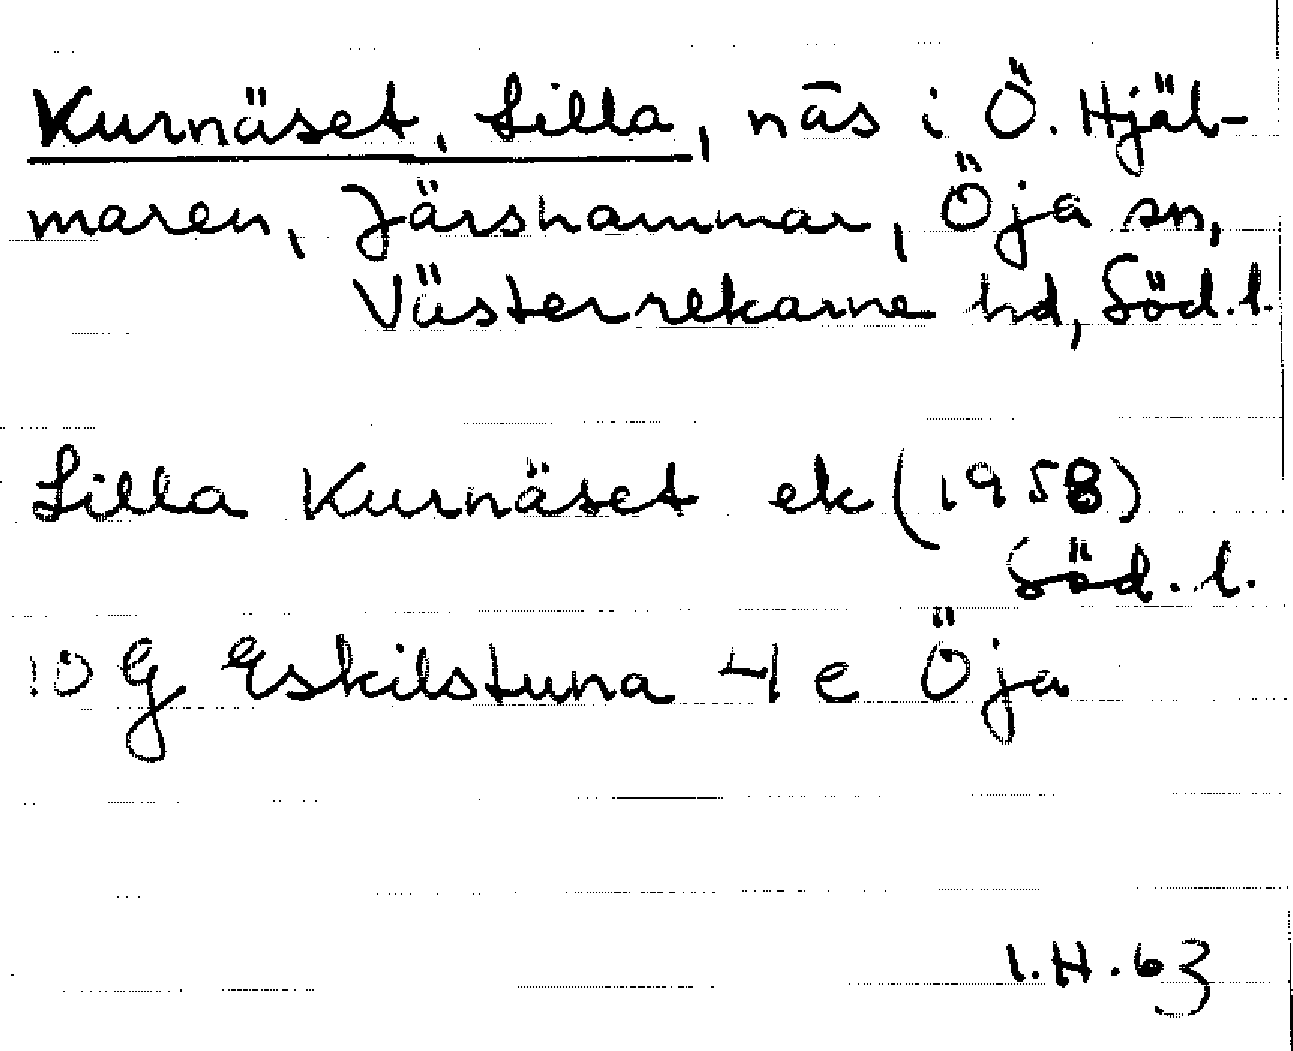 Kurnäset, Lilla, näs i Ö. Hjäl-
maren, Järshammar, Öja sn,
Västerrekarne hd, Söd. l.
Lilla Kurnäset ek (1958)
Söd. l.
10 G Eskilstuna 4 e Öja
I.H. 63